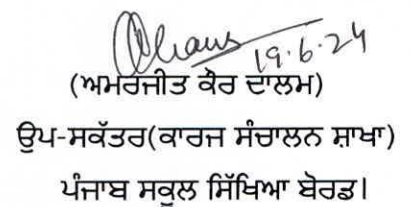 19.6.24
(ਅਮਰਜੀਤ ਕੌਰ ਦਾਲਮ)
ਉਪ-ਸਕੱਤਰ(ਕਾਰਜ ਸੰਚਾਲਨ ਸ਼ਾਖਾ)
ਪੰਜਾਬ ਸਕੂਲ ਸਿੱਖਿਆ ਬੋਰਡ।